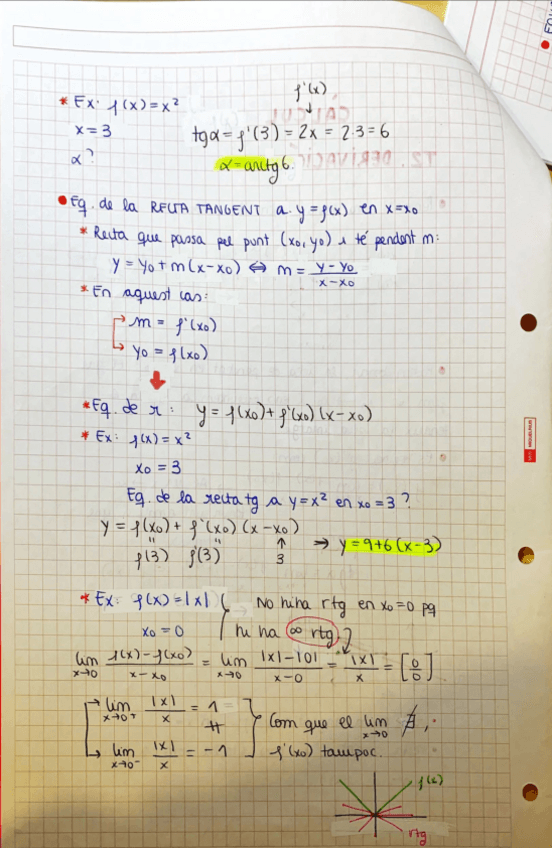 f'(x)
* Ex: f(x) = x²
↓
x = 3
tgα = f'(3) = 2x = 2·3 = 6
α?
α = arctg 6.
• Eq. de la RECTA TANGENT a y = f(x) en x = x₀
* Recta que passa pel punt (x₀, y₀) i té pendent m:
y = y₀ + m(x - x₀) ⇔ m = (y - y₀)/(x - x₀)
* En aquest cas:
→ m = f'(x₀)
↳ y₀ = f(x₀)
* Eq. de r: y = f(x₀) + f'(x₀)(x - x₀)
* Ex: f(x) = x²
x₀ = 3
Eq. de la recta tg a y = x² en x₀ = 3?
y = f(x₀) + f'(x₀)(x - x₀)
f(3) f'(3) ↑ 3
⇒ y = 9 + 6(x - 3)
* Ex: f(x) = |x| { No hi ha rtg en x₀ = 0 pq
x₀ = 0 { hi ha ∞ rtg.
lim x→0 (f(x) - f(x₀))/(x - x₀) = lim x→0 (|x| - |0|)/(x - 0) = |x|/x = [0/0]
→ lim x→0⁺ |x|/x = 1
≠ } Com que el lim x→0 ∄,
↳ lim x→0⁻ |x|/x = -1 } f'(x₀) tampoc.
f(x)
rtg